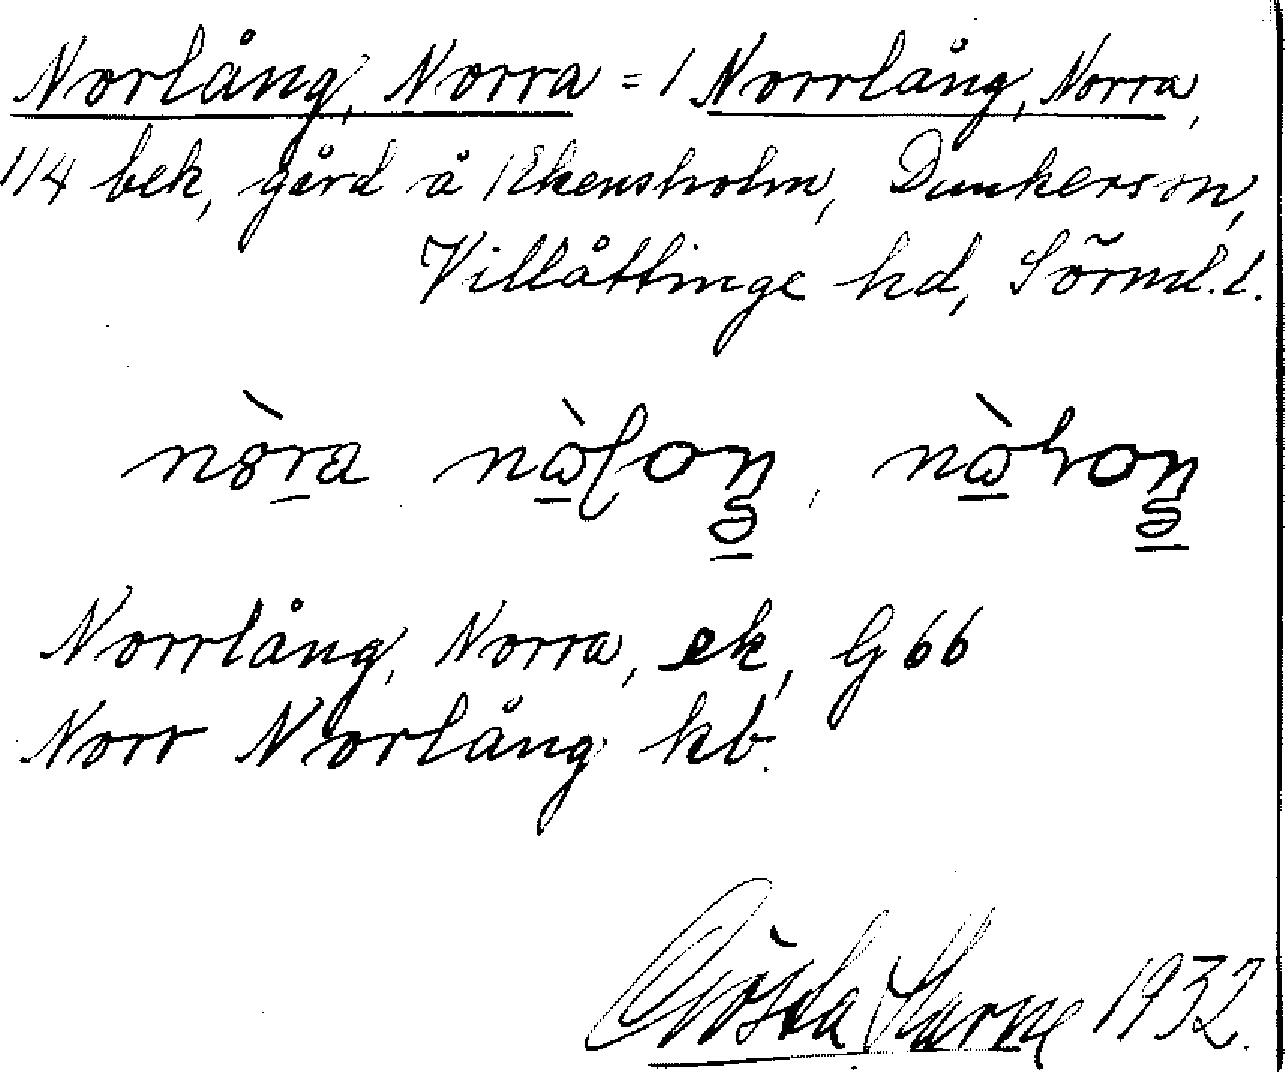 Norlång, Norra = 1 Norrlång, Norra,
1/4 bek, gård å Ekensholm, Dunkers sn,
Villåttinge hd, Sörml. l.
Norrlång, Norra, ek, G 66
Norr Norlång kb.
Gösta 1932.